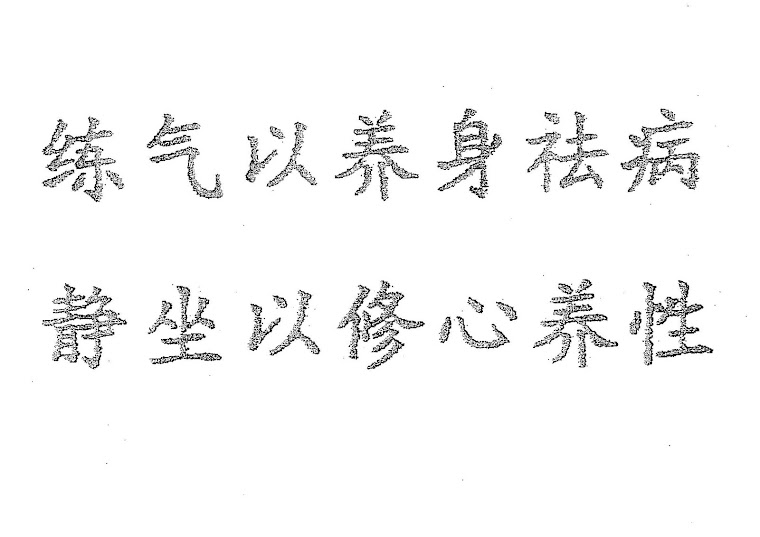 练气以养身祛病
静坐以修心养性